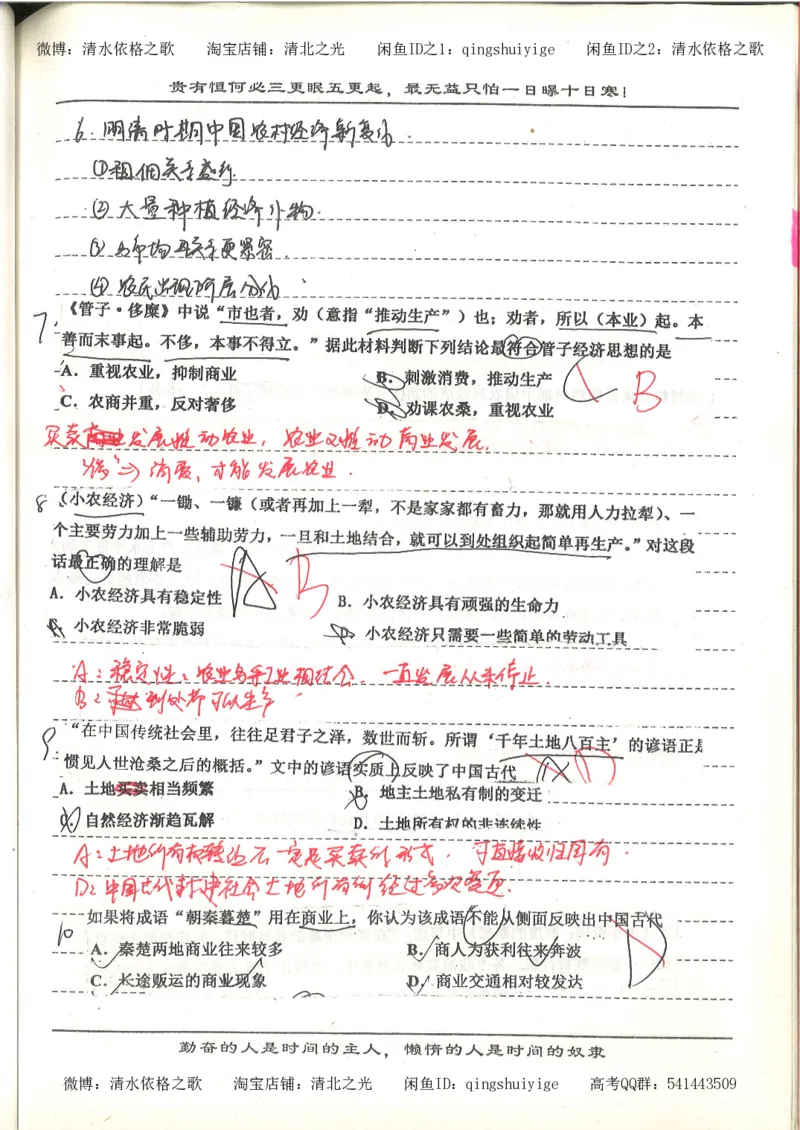 微博：清水依格之歌 淘宝店铺：清北之光 闲鱼ID之1：qingshuiyige 闲鱼ID之2：清水依格之歌
贵有恒何必三更眠五更起，最无益只怕一日曝十日寒！
6. 明清时期中国农村经济新变化.
①租佃关系盛行
② 大量种植经济作物.
③ 与市场关系更紧密.
④ 农民出现阶层分化
7. 《管子·侈糜》中说“市也者，劝（意指“推动生产”）也；劝者，所以（本业）起。本
善而末事起。不侈，本事不得立。”据此材料判断下列结论最符合管子经济思想的是
A．重视农业，抑制商业 B．刺激消费，推动生产
C．农商并重，反对奢侈 D．劝课农桑，重视农业
B
买卖发展推动农业，农业又推动商业发展.
侈⇒消费，才能发展农业.
8、（小农经济）“一锄、一镰（或者再加上一犁，不是家家都有畜力，那就用人力拉犁）、一
个主要劳力加上一些辅助劳力，一旦和土地结合，就可以到处组织起简单再生产。”对这段
话最正确的理解是 A B
A．小农经济具有稳定性 B．小农经济具有顽强的生命力
C．小农经济非常脆弱 D．小农经济只需要一些简单的劳动工具
A：稳定性：农业与手工业相结合。一直发展从未停止.
B：到处都可以生产
9 “在中国传统社会里，往往足君子之泽，数世而斩。所谓‘千年土地八百主’的谚语正是
惯见人世沧桑之后的概括。”文中的谚语实质上反映了中国古代 D
A．土地买卖相当频繁 B．地主土地私有制的变迁
C．自然经济渐趋瓦解 D．土地所有权的非连续性
A：土地所有权转让不一定是买卖的形式．可直接收归国有.
D：中国古代封建社会土地所有制经过多次变更.
10 如果将成语“朝秦暮楚”用在商业上，你认为该成语不能从侧面反映出中国古代
A．秦楚两地商业往来较多 B．商人为获利往来奔波 D
C．长途贩运的商业现象 D．商业交通相对较发达
勤奋的人是时间的主人，懒惰的人是时间的奴隶
微博：清水依格之歌 淘宝店铺：清北之光 闲鱼ID：qingshuiyige 高考QQ群：541443509